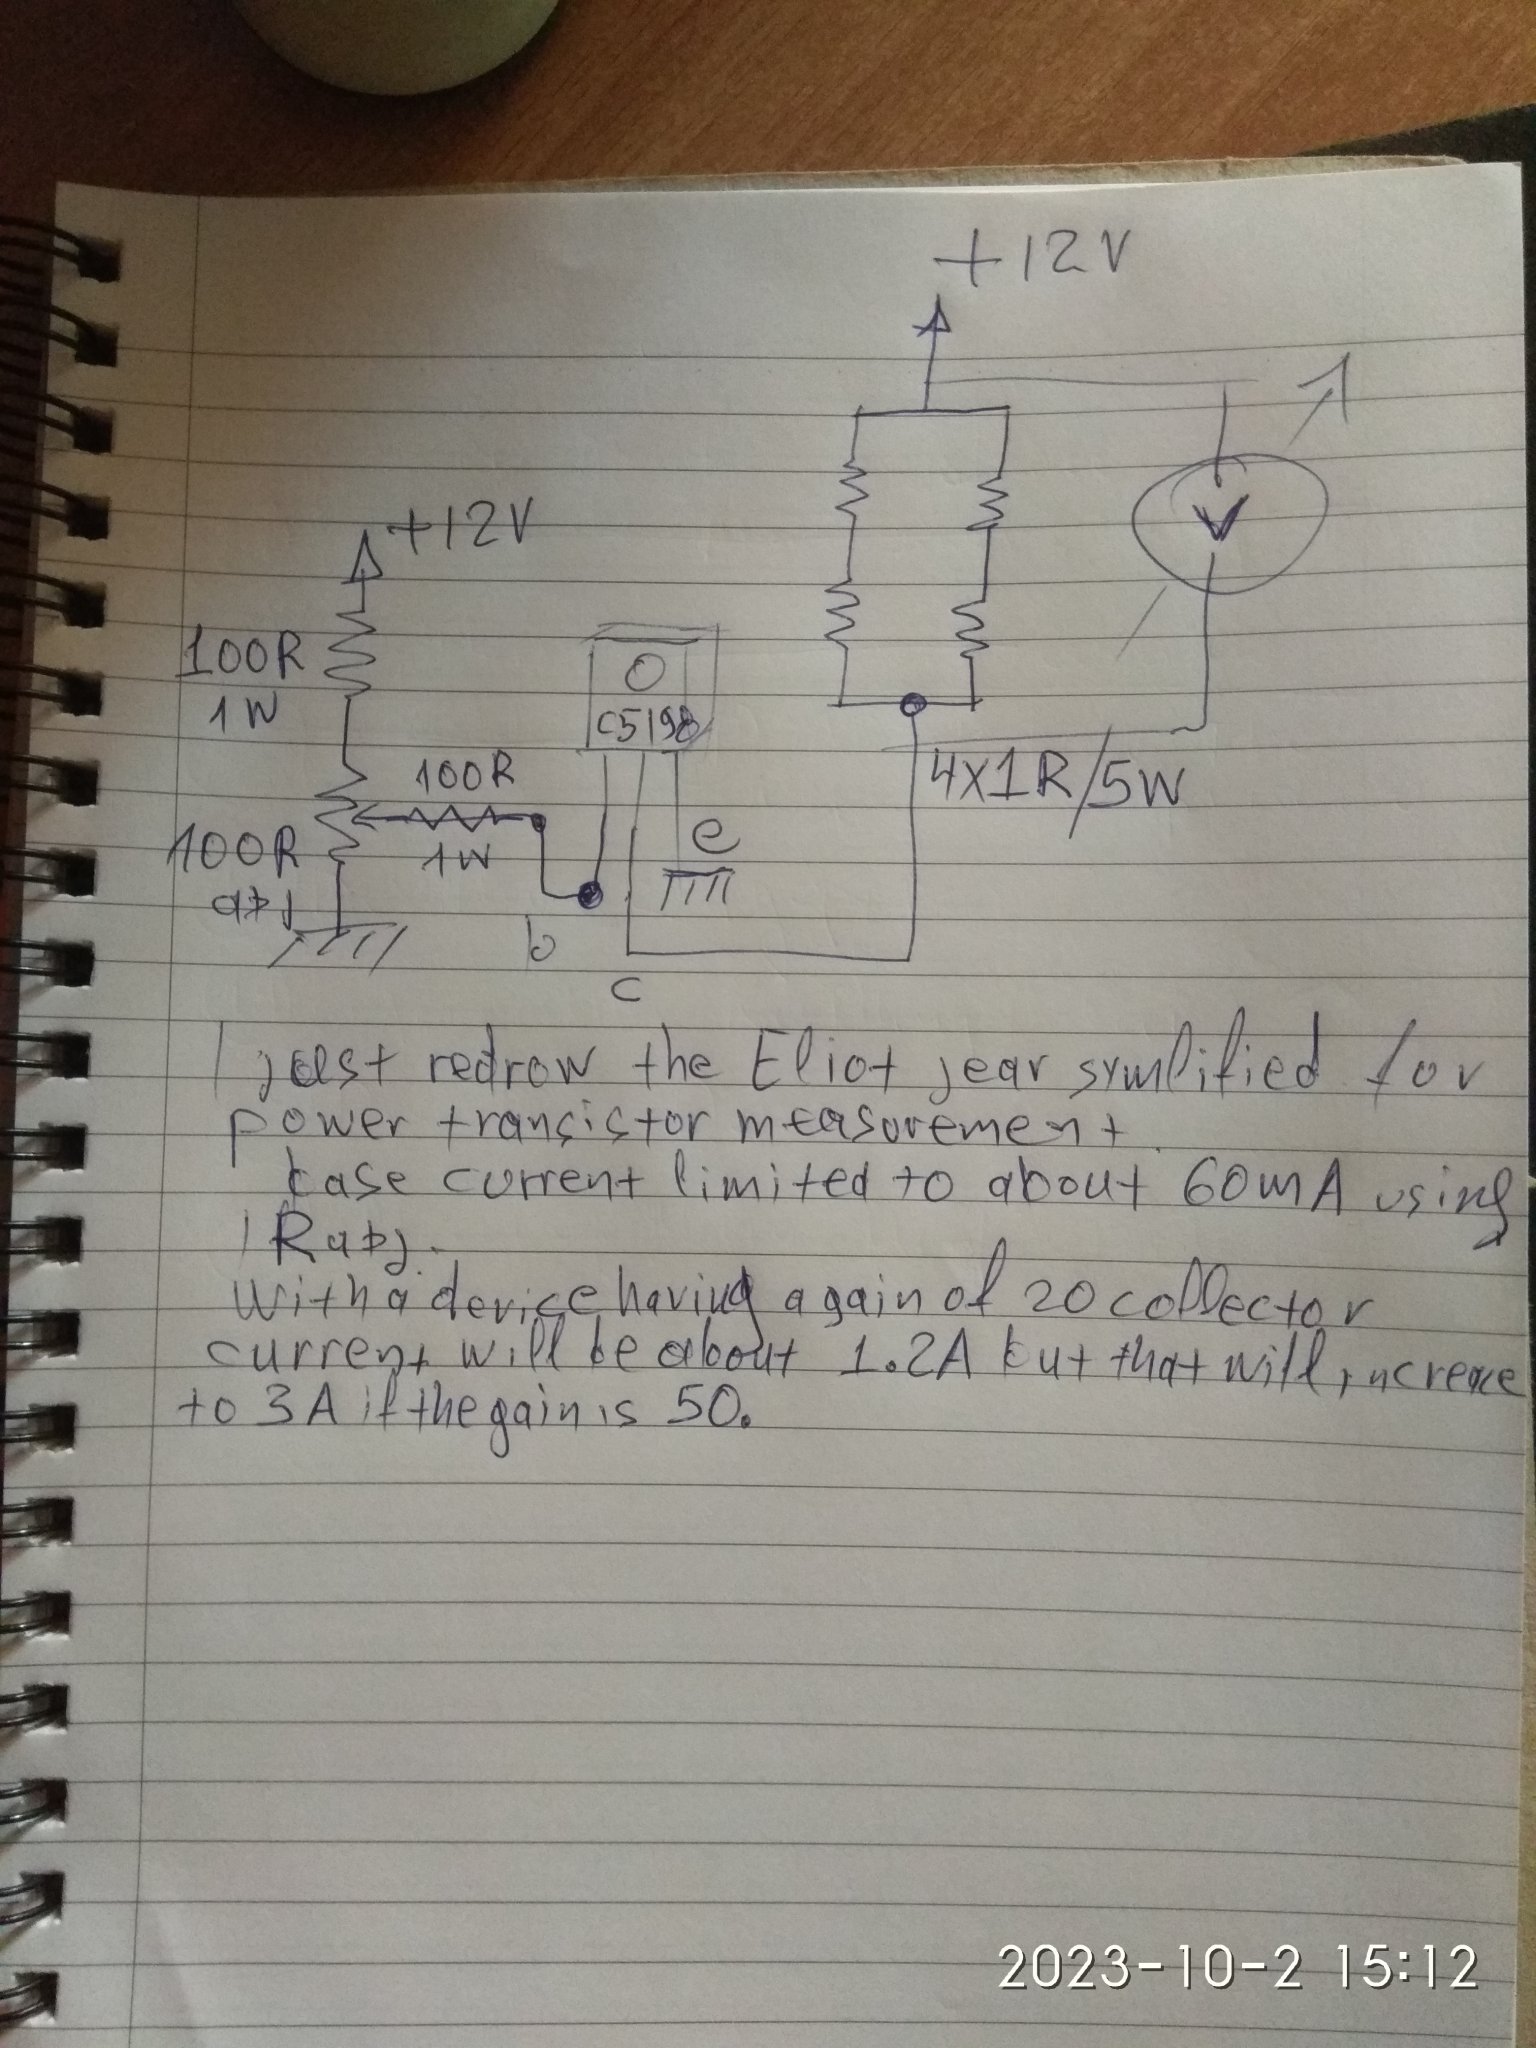 +12V
+12V
V
100R
1W
O
C5198
100R
1W
4x1R/5W
100R
adj
e
b
c
I just redrow the Eliot jear symlified for
power transistor measurement.
base current limited to about 60mA using
Radj.
With a device having a gain of 20 collector
current will be about 1.2A but that will increace
to 3A if the gain is 50.
2023-10-2 15:12